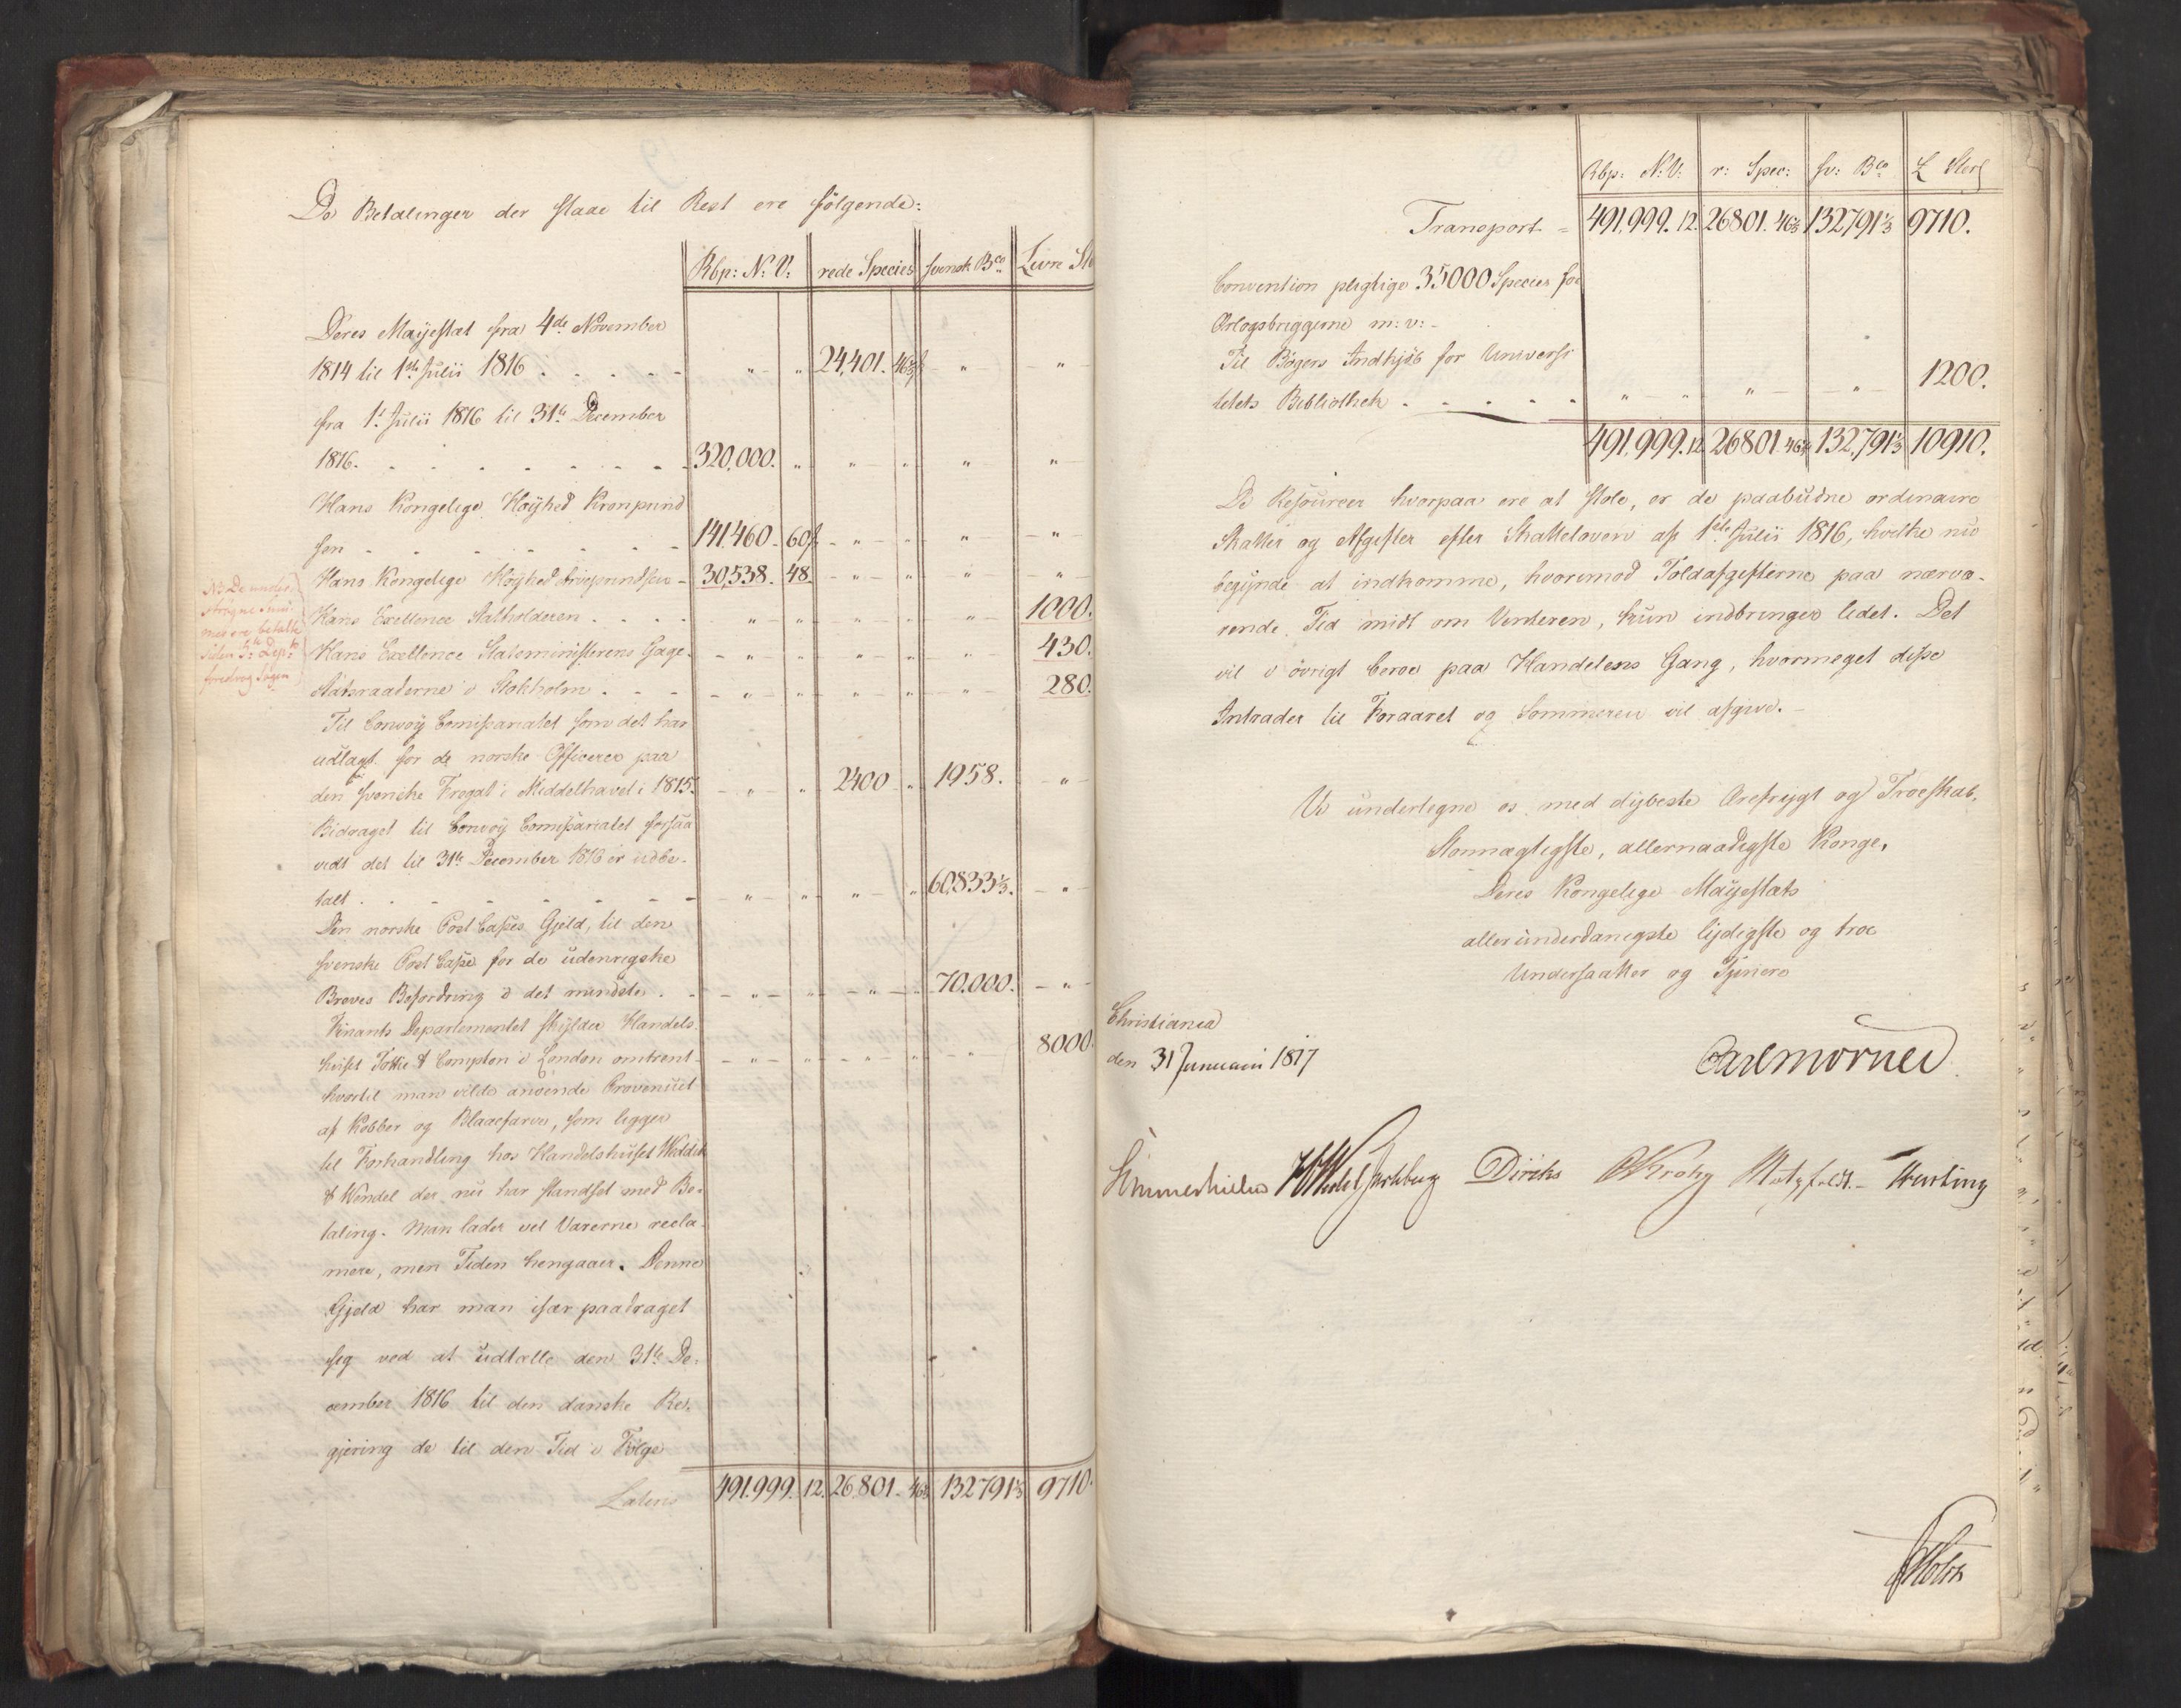 De Betalinger der staae til Rest ere følgende:
Rbp: N: V: rede Species svensk Bco Livre Ste
Deres Mayestæt fra 4de November
1814 til 1ste Julii 1816 . . . . . " " 24,401. 46⅔ " "
fra 1ste Julii 1816 til 31te December
1816. . . . . . . . 320,000. " " " " "
Hans Kongelige Høyhed Kronprind
sen - - - - - - - 141,460 60 " " " "
Hans Kongelige Høyhed Arveprindsen - 30,538. 48. " " " "
Hans Exellence Statholderen . . . . " " " " " 1000.
Hans Exellence Statsministerens Gage. " " " " " 430.
Statsraaderne i Stokholm . - - " " " " " 280.
NB De under-
strøgne Sum-
mer ere betalte
siden 3die Depts
foredrog Sagen
Til Convoy Comissariatet som det har
udlagt for de norske Officerer paa
den svenske Fregat i Middelhavet i 1815. " " 2400 " 1958. "
Bidraget til Convoy Comissariatet forsaa
vidt det til 31te December 1816 er udbe-
talt . - - - - - - " " " " 60,833⅓. "
Den norske Post Casses Gjeld, til den
svenske Post Casse for de udenrigske
Breves Befordring i det mindste . - " " " " 70,000. "
Finants Departementet skylder Handels
huset Tottie & Compton i London omtrent - " " " " " 8000.
hvortil man vilde anvende Provenuet
af Kobber og Blaaefarve, som ligger
til Forhandling hos Handelshuset Weddik
& Wendel der nu har standset med Be-
taling. Man lader vel Varerne recla-
mere, men Tiden hengaaer. Denne
Gjeld har man især paadraget
sig ved at udtælle den 31te De-
cember 1816 til den danske Re-
gjering de til den Tid i Følge
Lateris 491,999. 12. 26,801. 46⅔ 132791⅓ 9710.
Rbp: N:V: r: Spec: sv: Bco £ Sterl
Transport - 491,999. 12. 26801. 46⅔ 132791⅓ 9710.
Convention pligtige 35000 Species for
Orlogsbriggerne m: v: -
Til Bøgers Indkjøb for Universi
tetets Bibliothek . - - - - " " " " 1200.
491,999. 12 26801. 46⅔ 132,791⅓ 10910.
De Resourcer hvorpaa ere at stole, er de paabudne ordinaire
Skatter og Afgifter efter Skatteloven af 1ste Julii 1816, hvilke nu
begynde at indkomme, hvorimod Toldafgifterne paa nærvæ-
rende Tid midt om Vinteren, kun indbringer lidet. Det
vil i øvrigt beroe paa Handelens Gang, hvormeget disse
Intrader til Foraaret og Sommeren vil afgive. -
Vi undertegne os med dybeste Ærefrygt og Troeskab,
Stormægtigste, allernaadigste Konge,
Deres Kongelige Mayestæts
allerunderdanigste lydigste og troe
Undersaatter og Tjenere
Christiania
den 31 Januarii 1817
Carl Mörner
Sommerhielm Diriks CKrohg Motzfeldt. - Hertzing
Holst